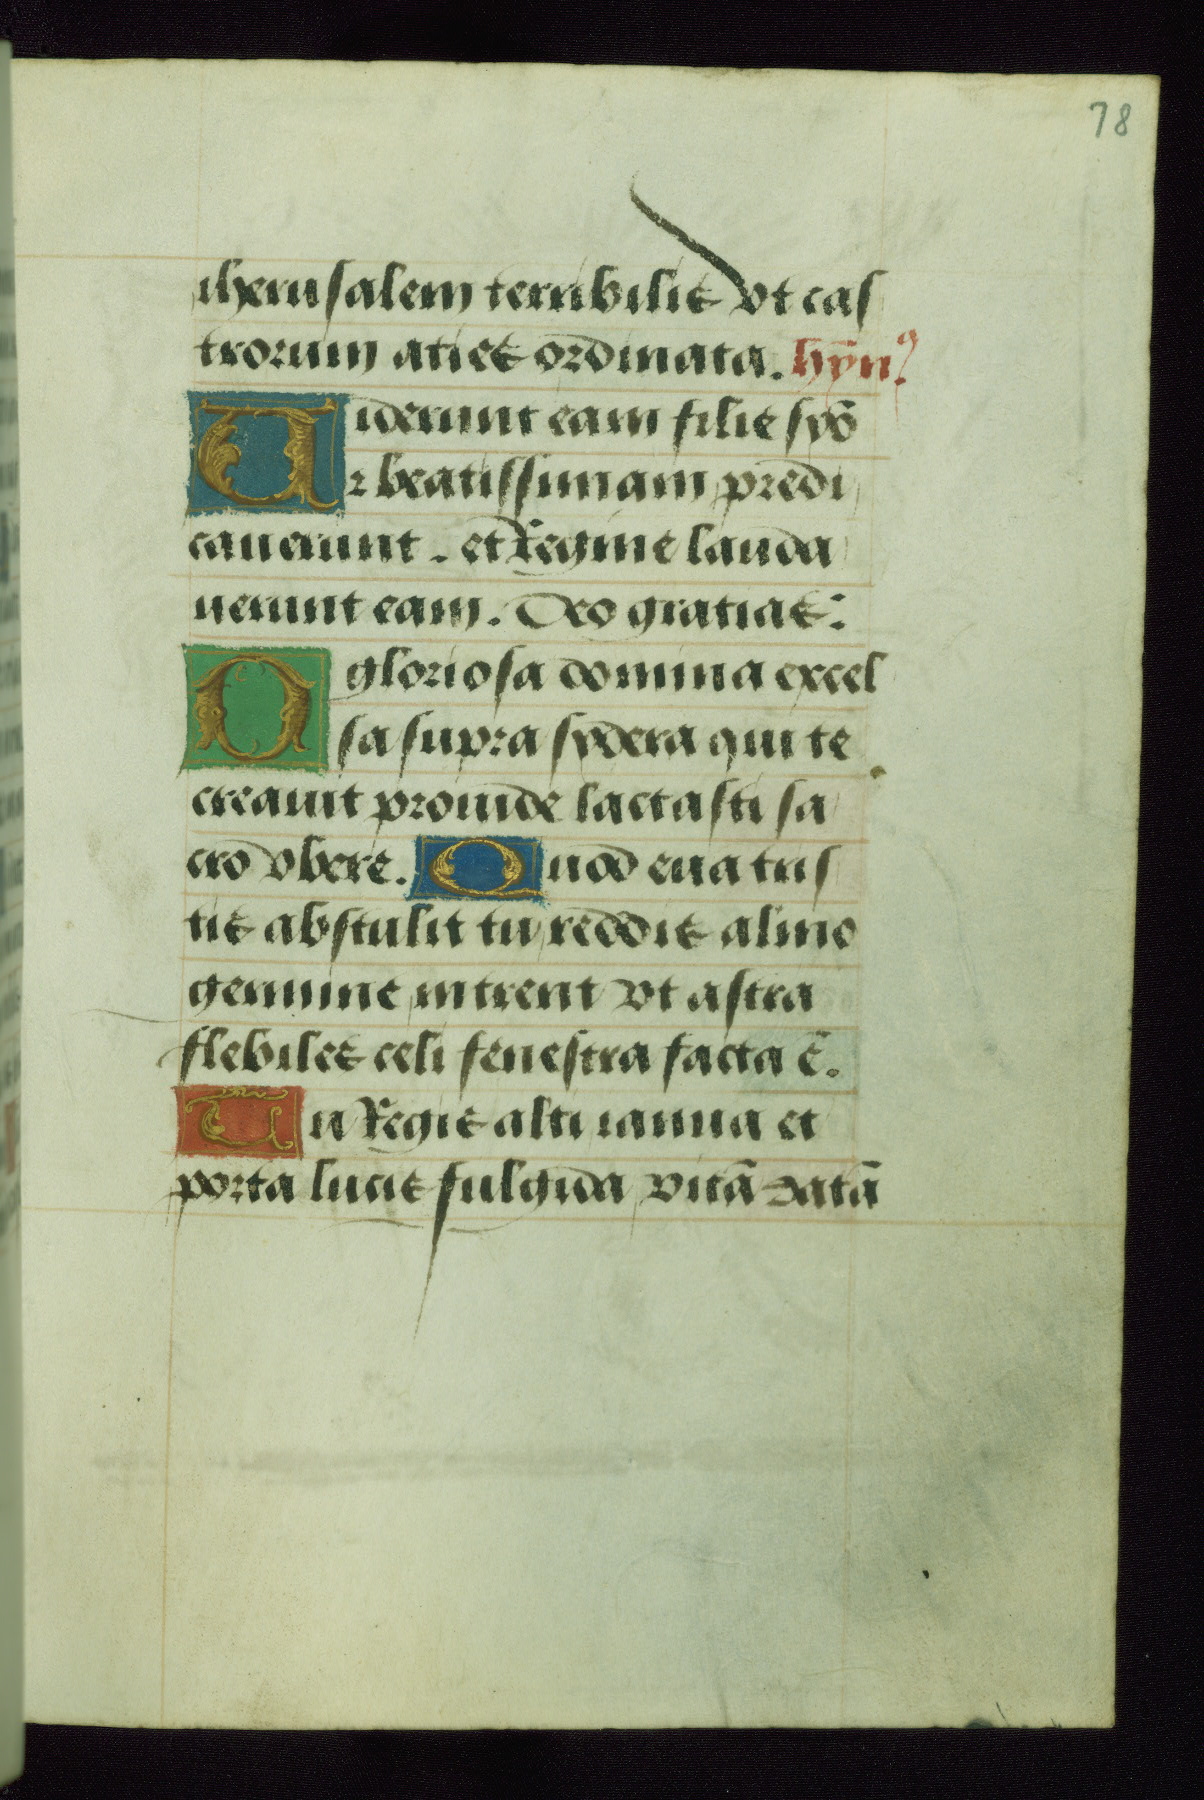 78
iherusalem terribilis vt cas
trorum acies ordinata. hȳnꝰ
Uiderunt eam filie syō
⁊ beatissimam predi
cauerunt. et Regine lauda
uerunt eam. Deo gratias:
O gloriosa domina excel
sa supra sydera qui te
creauit prouide lactasti sa
cro vbere. Quod eua tris
tis abstulit tu reddis almo
germine intrent vt astra
flebiles celi fenestra facta ē.
Tu Regis alti ianua et
porta lucis fulgida vitā datā